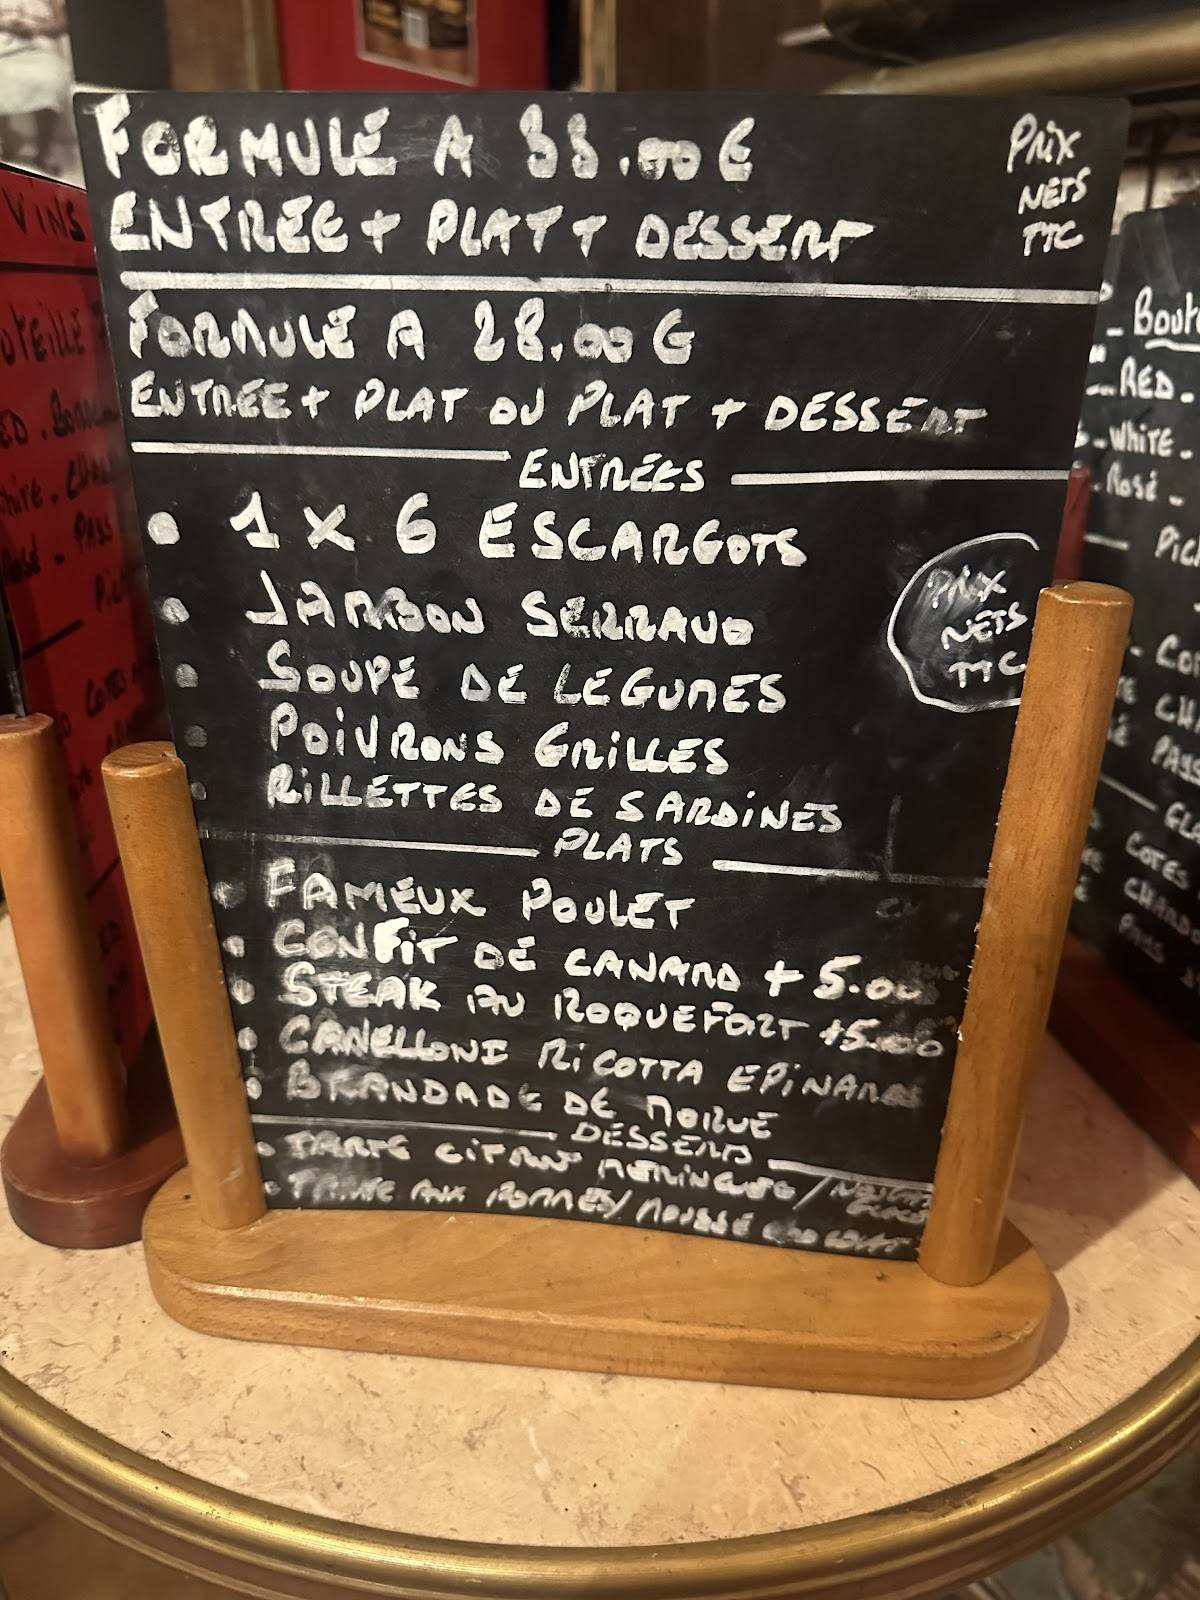 FORMULE A 33.00€
ENTRÉE + PLAT + DESSERT
PRIX
NETS
TTC
FORMULE A 28.00€
ENTRÉE + PLAT OU PLAT + DESSERT
ENTRÉES
1 X 6 ESCARGOTS
JAMBON SERRANO
SOUPE DE LEGUMES
POIVRONS GRILLES
RILLETTES DE SARDINES
PRIX
NETS
TTC
PLATS
FAMEUX POULET
CONFIT DE CANARD + 5.00
STEAK AU ROQUEFORT +5.00
CANELLONI RICOTTA EPINARDS
BRANDADE DE MORUE
DESSERTS
TARTE CITRON MERINGUEE /
TARTE AUX POMMES / MOUSSE CHOCOLAT
VINS
RED.
White.
Rosé - PASS
- RED.
- White.
- Rosé -
COTES
CHARD
PAYS